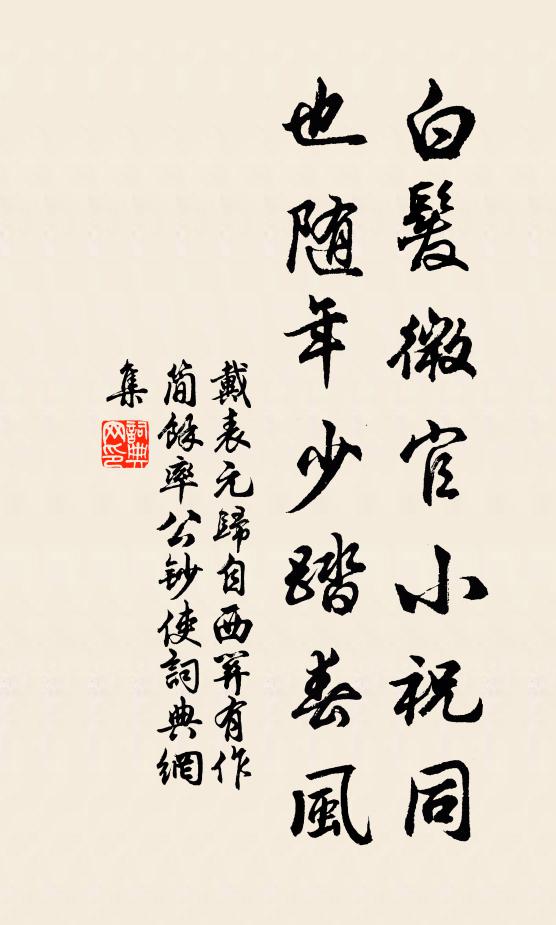 白髮微官小祝同
也随年少踏春風
戴表元歸自西有作
簡餘率公鈔使詞典網
集
詞典
网印